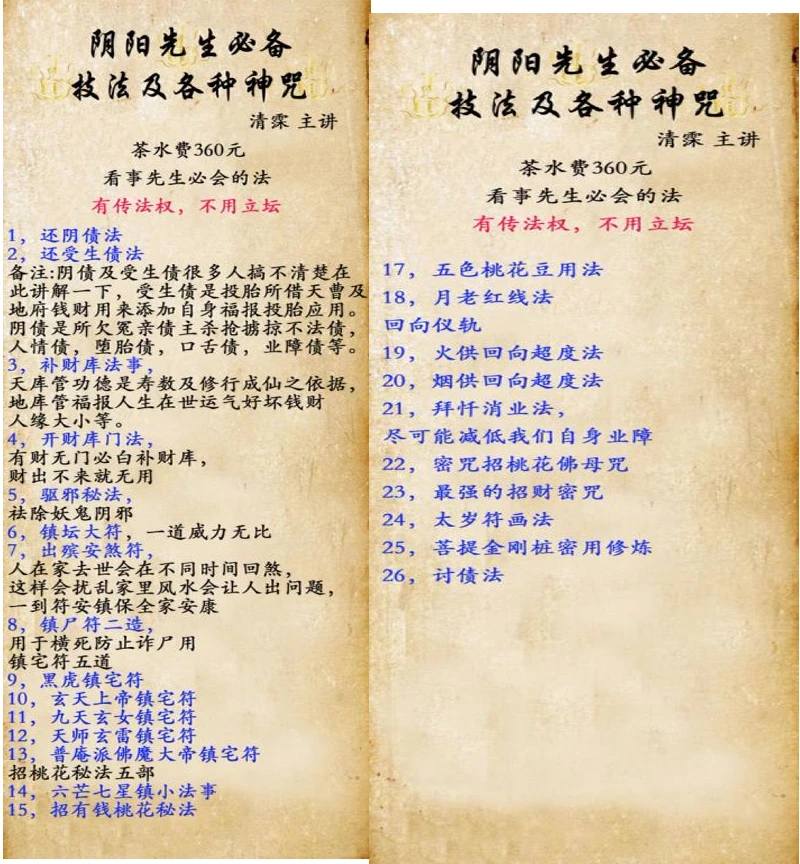 阴阳先生必备
技法及各种神咒
清霂 主讲
茶水费360元
看事先生必会的法
有传法权，不用立坛
1，还阴债法
2，还受生债法
备注:阴债及受生债很多人搞不清楚在
此讲解一下，受生债是投胎所借天曹及
地府钱财用来添加自身福报投胎应用。
阴债是所欠冤亲债主杀抢掳掠不法债，
人情债，堕胎债，口舌债，业障债等。
3，补财库法事，
天库管功德是寿数及修行成仙之依据，
地库管福报人生在世运气好坏钱财
人缘大小等。
4，开财库门法，
有财无门必白补财库，
财出不来就无用
5，驱邪秘法，
祛除妖鬼阴邪
6，镇坛大符，一道威力无比
7，出殡安煞符，
人在家去世会在不同时间回煞，
这样会扰乱家里风水会让人出问题，
一到符安镇保全家安康
8，镇尸符二造，
用于横死防止诈尸用
镇宅符五道
9，黑虎镇宅符
10，玄天上帝镇宅符
11，九天玄女镇宅符
12，天师玄雷镇宅符
13，普庵派佛魔大帝镇宅符
招桃花秘法五部
14，六芒七星镇小法事
15，招有钱桃花秘法
阴阳先生必备
技法及各种神咒
清霂 主讲
茶水费360元
看事先生必会的法
有传法权，不用立坛
17，五色桃花豆用法
18，月老红线法
回向仪轨
19，火供回向超度法
20，烟供回向超度法
21，拜忏消业法，
尽可能减低我们自身业障
22，密咒招桃花佛母咒
23，最强的招财密咒
24，太岁符画法
25，菩提金刚桩密用修炼
26，讨债法